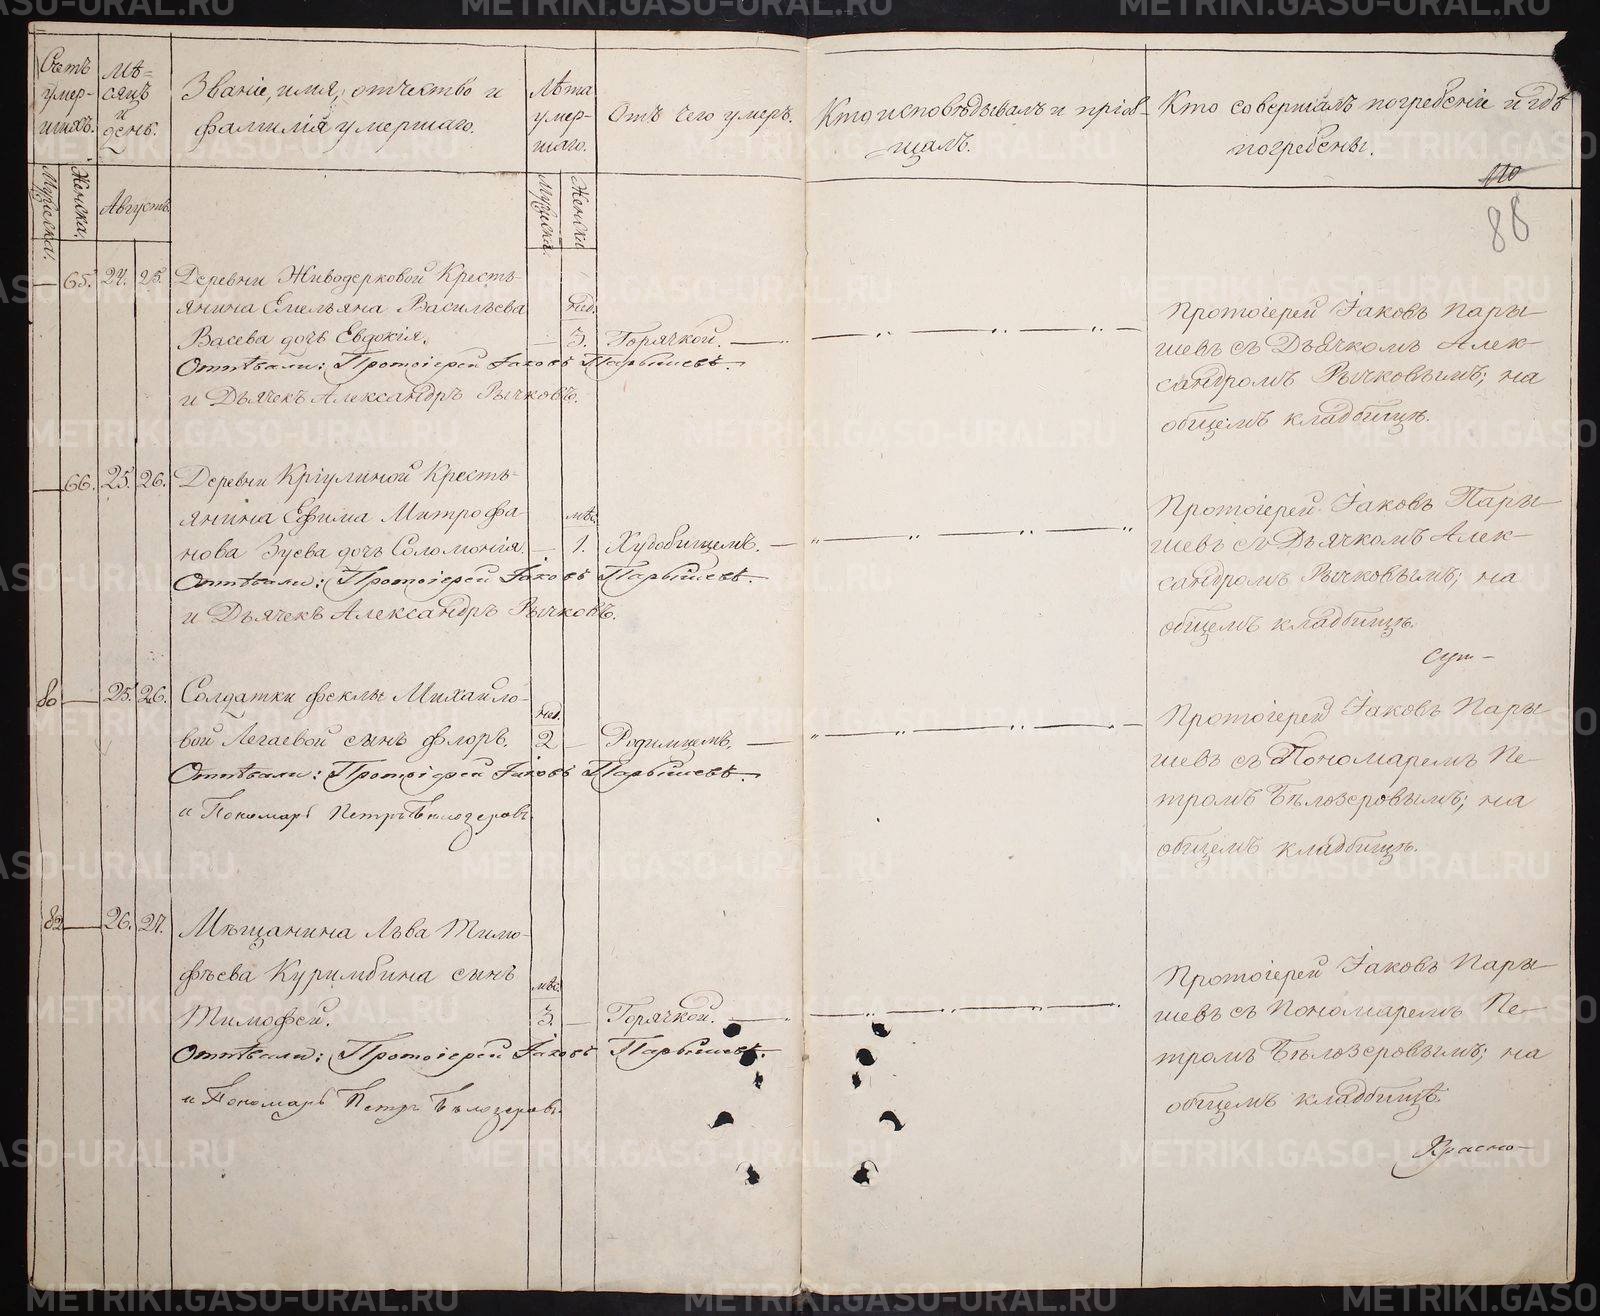 Счетъ умер-
шихъ.
Мѣ-
сяцъ
и
день.
Званіе, имя, отчество и
фамилія умершаго.
Лѣта
умер-
шаго.
Отъ чего умеръ.
Кто исповѣдывалъ и пріоб-
щалъ.
Кто совершалъ погребеніе и гдѣ
погребены.
110
88
Мужеска.
Женска.
Августъ.
Мужеска.
Женски
— 65. 24. 25. Деревни Живодерковой Кресть-
янина Емельяна Васильева нед.
Васева дочь Евдокія. — 3. Горячкой.
Отпѣвали: Протоіерей Іаковъ Парышевъ.
и Дьячекъ Александръ Рычковъ.
Протоіерей Іаковъ Пары-
шевъ съ Дьячкомъ Алек-
сандромъ Рычковымъ; на
общемъ кладбищѣ.
— 66. 25. 26. Деревни Кріулиной Кресть-
янина Ефима Митрофа- мѣс.
нова Зуева дочь Соломонія. — 1. Худобищемъ.
Отпѣвали: Протоіерей Іаковъ Парышевъ.
и Дьячекъ Александръ Рычковъ.
Протоіерей Іаковъ Пары-
шевъ съ Дьячкомъ Алек-
сандромъ Рычковымъ; на
общемъ кладбищѣ.
80 — 25. 26. Солдатки Феклы Михайло- нед.
вой Легаевой сынъ Флоръ. 2 — Родимцемъ.
Отпѣвали: Протоіерей Іаковъ Парышевъ.
и Пономарь Петръ Бѣлозеровъ.
Протоіерей Іаковъ Пары-
шевъ съ Пономаремъ Пе-
тромъ Бѣлозеровымъ; на
общемъ кладбищѣ.
82 — 26. 27. Мѣщанина Льва Тимо-
фѣева Куримбина сынъ мѣс.
Тимофей. 3. — Горячкой.
Отпѣвали: Протоіерей Іаковъ Парышевъ.
и Пономарь Петръ Бѣлозеровъ.
Протоіерей Іаковъ Пары-
шевъ съ Пономаремъ Пе-
тромъ Бѣлозеровымъ; на
общемъ кладбищѣ.
Красно-
METRIKI.GASO-URAL.RU